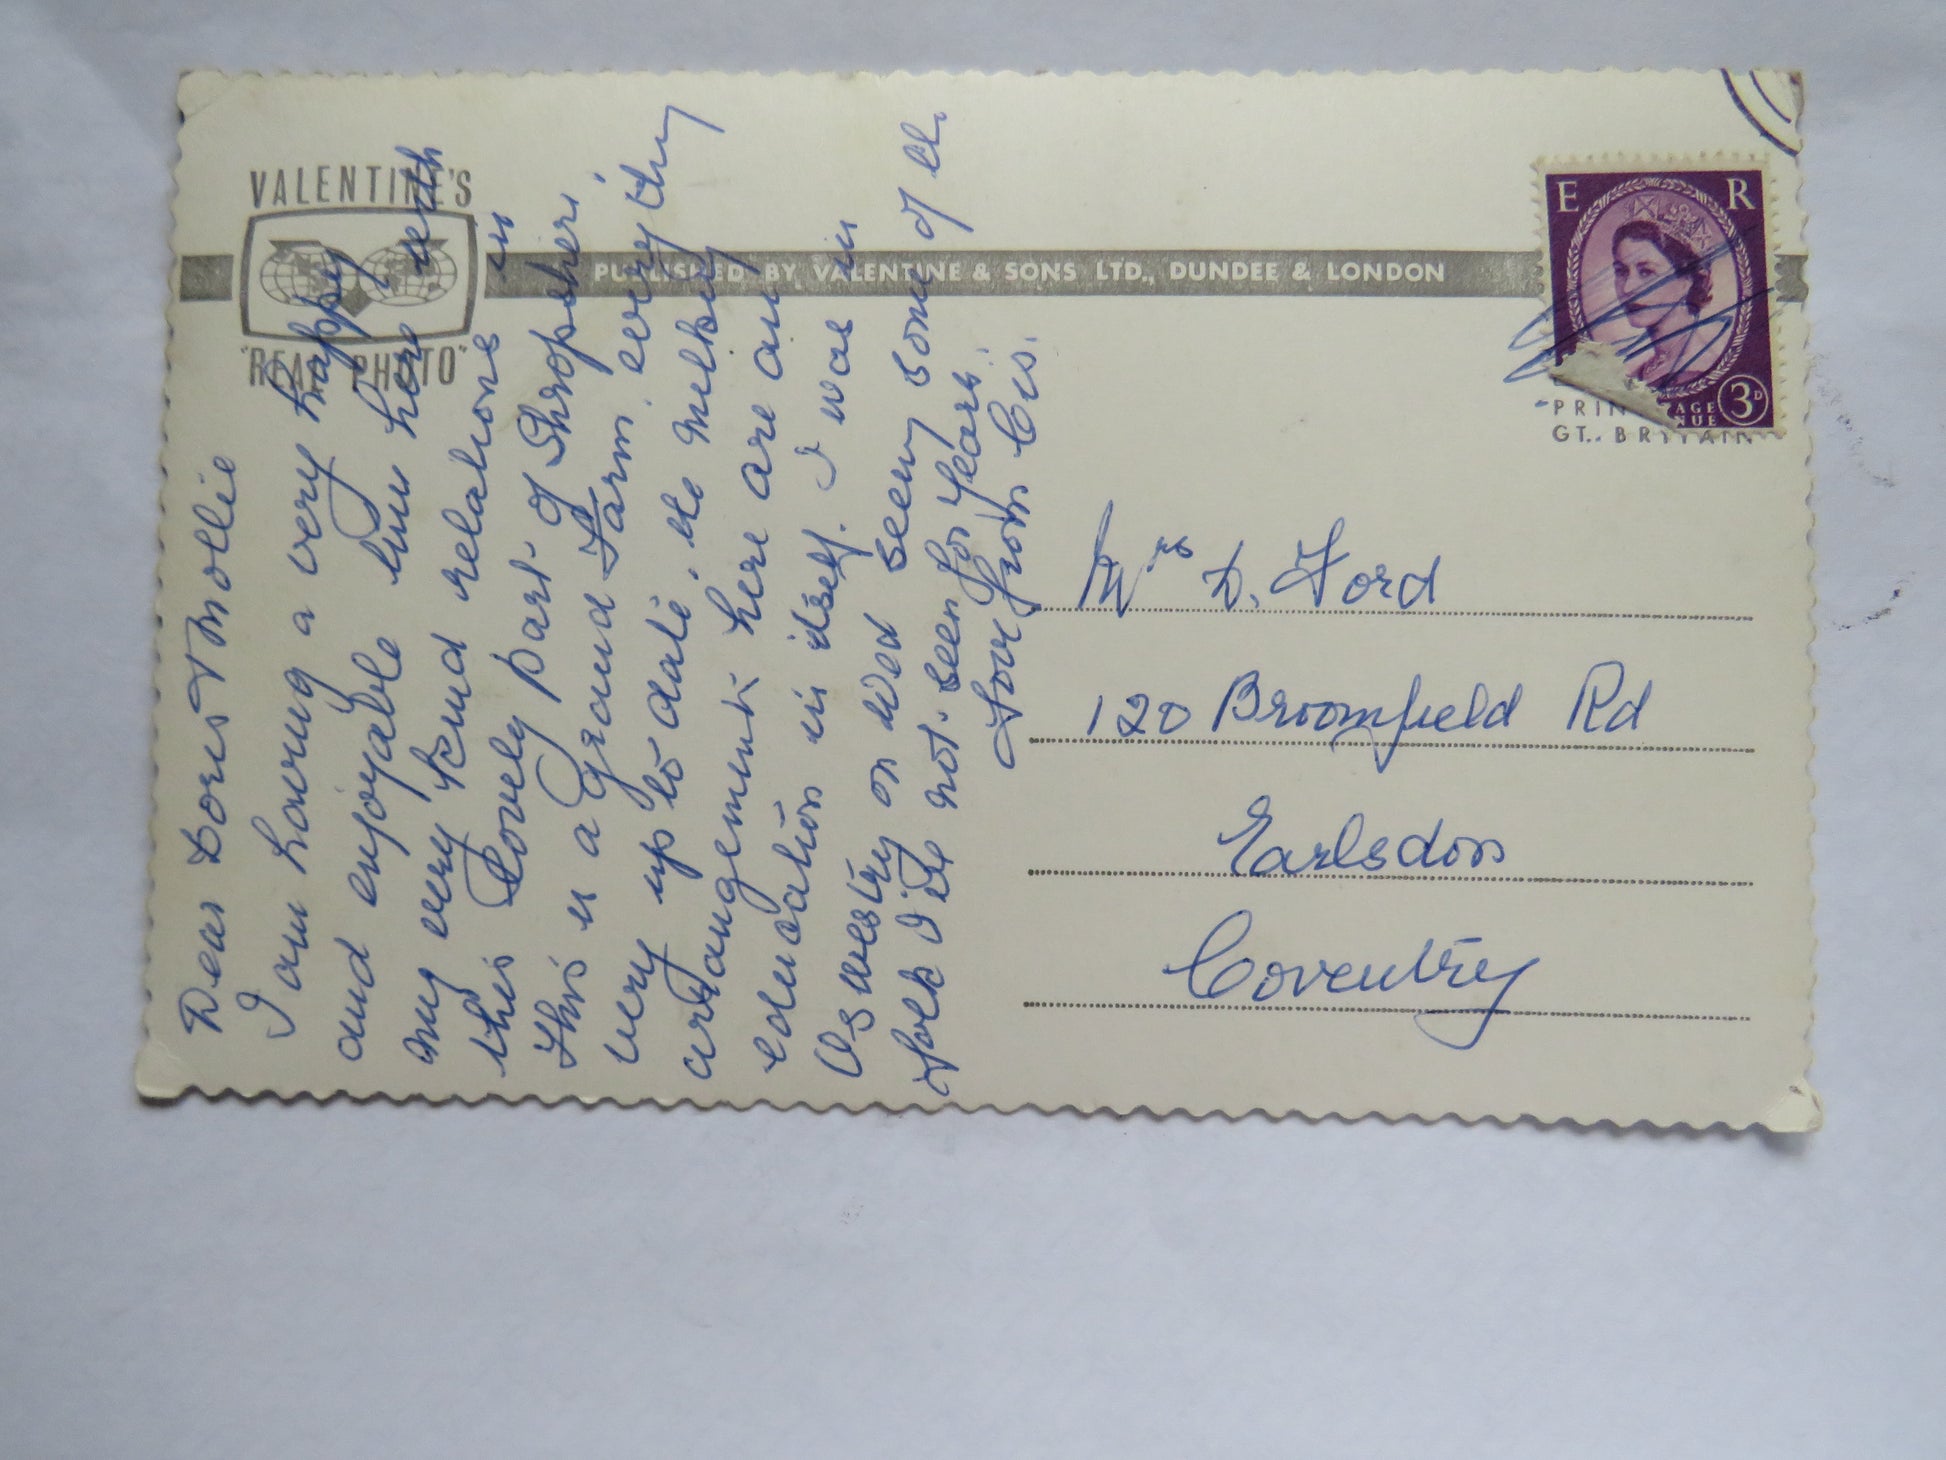 VALENTINE'S
"REAL PHOTO"
PUBLISHED BY VALENTINE & SONS LTD., DUNDEE & LONDON
E R
3D
GT. BRITAIN
Dear Doris & Mollie
I am having a very happy
and enjoyable time here with
my very kind relations in
this lovely part of Shropshire.
This is a grand Farm. everything
very up to date. the milking
arrangements here are an
education in itself. I was in
Oswestry on Wed seeing some of the
folk I'd not seen for years.
Love from Cis.
Mrs D. Ford
120 Broomfield Rd
Earlsdon
Coventry